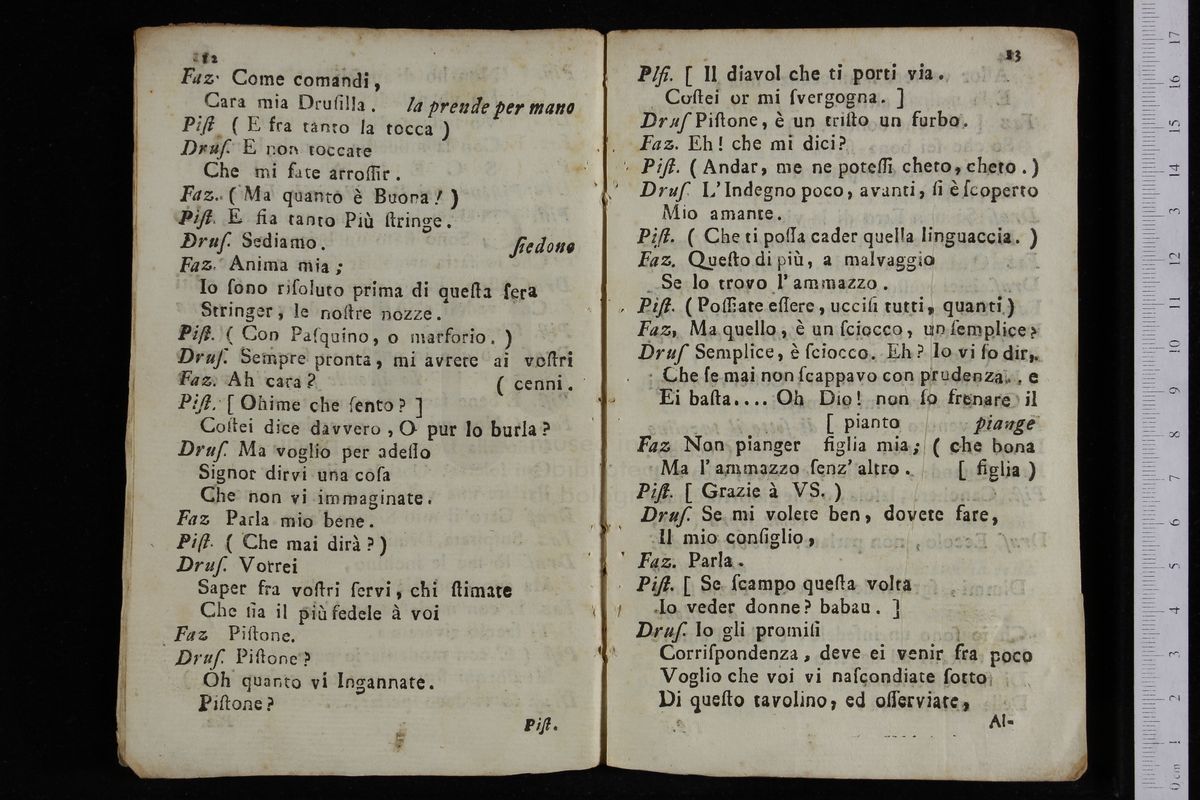 12
Faz. Come comandi,
Cara mia Druſilla. la prende per mano
Piſt ( E fra tanto la tocca )
Druſ. E non toccate
Che mi fate arroſſir.
Faz. ( Ma quanto è Buona! )
Piſt. E ſia tanto Più ſtringe.
Druſ. Sediamo. ſiedono
Faz. Anima mia;
Io ſono riſoluto prima di queſta ſera
Stringer, le noſtre nozze.
Piſt. ( Con Paſquino, o marforio. )
Druſ. Sempre pronta, mi avrete ai voſtri
Faz. Ah cara? ( cenni.
Piſt. [ Ohime che ſento? ]
Coſtei dice davvero, O pur Io burla?
Druſ. Ma voglio per adeſſo
Signor dirvi una coſa
Che non vi immaginate.
Faz Parla mio bene.
Piſt. ( Che mai dirà? )
Druſ. Vorrei
Saper fra voſtri ſervi, chi ſtimate
Che ſia il più fedele à voi
Faz Piſtone.
Druſ. Piſtone?
Oh quanto vi Ingannate.
Piſtone?
Piſt.
13
Plſi. [ Il diavol che ti porti via.
Coſtei or mi ſvergogna. ]
Druſ Piſtone, è un triſto un furbo.
Faz. Eh! che mi dici?
Piſt. ( Andar, me ne poteſſi cheto, cheto. )
Druſ. L'Indegno poco, avanti, ſi è ſcoperto
Mio amante.
Piſt. ( Che ti poſſa cader quella linguaccia. )
Faz. Queſto di più, a malvaggio
Se lo trovo l'ammazzo.
Piſt. ( Poſſiate eſſere, ucciſi tutti, quanti )
Faz, Ma quello, è un ſciocco, un ſemplice,
Druſ Semplice, è ſciocco. Eh? Io vi ſo dir,
Che ſe mai non ſcappavo con prudenza... e
Ei baſta.... Oh Dio! non ſo frenare il
[ pianto piange
Faz Non pianger figlia mia; ( che bona
Ma l'ammazzo ſenz'altro. [ figlia )
Piſt. [ Grazie à VS. )
Druſ. Se mi volete ben, dovete fare,
Il mio conſiglio,
Faz. Parla.
Piſt. [ Se ſcampo queſta volta
Io veder donne? babau. ]
Druſ. Io gli promiſi
Corriſpondenza, deve ei venir fra poco
Voglio che voi vi naſcondiate ſotto
Di queſto tavolino, ed oſſerviate,
Al-